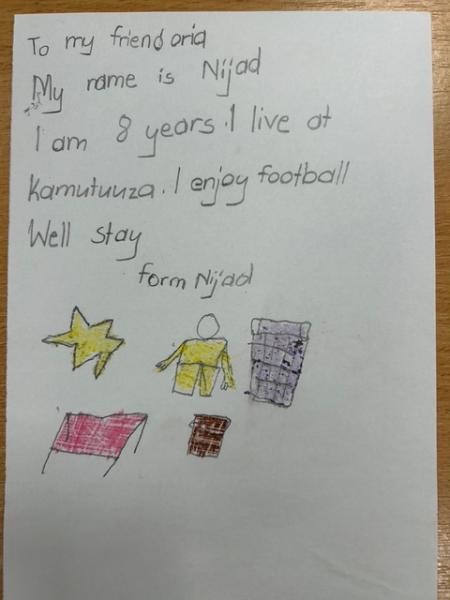 To my friend oria
My name is Nijad
I am 8 years. I live at
Kamutuuza. I enjoy football
Well stay
form Nijad